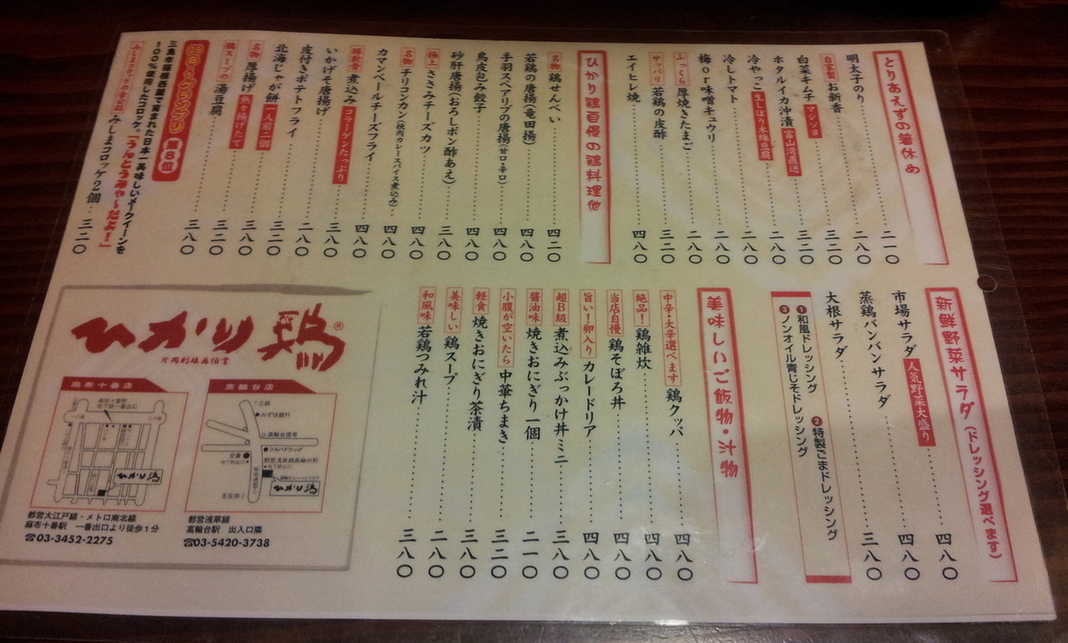 とりあえずの箸休め
明太子のり 二一〇
自家製 お新香 二八〇
白菜キムチ マシソヨ 三二〇
ホタルイカ沖漬 富山湾直送 三二〇
冷やっこ 生しぼり木綿豆腐 二八〇
冷しトマト 二八〇
梅or味噌キュウリ 二八〇
ふっくら 厚焼きたまご 三二〇
サッパリ 若鶏の皮酢 三二〇
エイヒレ焼 四八〇
ひかり鶏自慢の鶏料理他
名物 鶏せんべい 四二〇
若鶏の唐揚(竜田揚) 四八〇
手羽スペアリブの唐揚(甘口・辛口) 四八〇
鳥皮包み餃子 四八〇
砂肝唐揚(おろしポン酢あえ) 三八〇
極上 ささみチーズカツ 四八〇
名物 チリコンカン(焼肉カレースパイス煮込み) 四八〇
カマンベールチーズフライ 四八〇
豚軟骨 煮込み コラーゲンたっぷり 四八〇
いかげそ唐揚げ 三八〇
皮付きポテトフライ 二八〇
北海じゃが餅 一人前二個 三二〇
名物 厚揚げ 熱々揚げたて 三八〇
鶏スープの 湯豆腐 三二〇
第8位 三八〇
三島市箱根西麓で生まれた日本一美味しいメークイーンを
100%使用したコロッケ。「うんとうみゃ～だよ!」
みしまコロッケ2個 三二〇
新鮮野菜サラダ(ドレッシング選べます)
市場サラダ 人気野菜大盛り 四八〇
蒸鶏バンバンサラダ 四八〇
大根サラダ 三八〇
①和風ドレッシング ②特製ごまドレッシング
③ノンオイル青じそドレッシング
美味しいご飯物・汁物
中辛!大辛選べます 鶏クッパ 四八〇
絶品! 鶏雑炊 四八〇
当店自慢 鶏そぼろ丼 四八〇
旨い!卵入り カレードリア 四八〇
超B級 煮込みぶっかけ丼ミニ 三八〇
醤油味 焼きおにぎり一個 二一〇
小腹が空いたら 中華ちまき 三二〇
軽食 焼きおにぎり茶漬 三八〇
美味しい 鶏スープ 二八〇
和風味 若鶏つみれ汁 三八〇
ひかり鶏®
麻布十番店
都営大江戸線・メトロ南北線
麻布十番駅 一番出口より徒歩1分
☎03-3452-2275
高輪台店
都営浅草線
高輪台駅 出入口隣
☎03-5420-3738